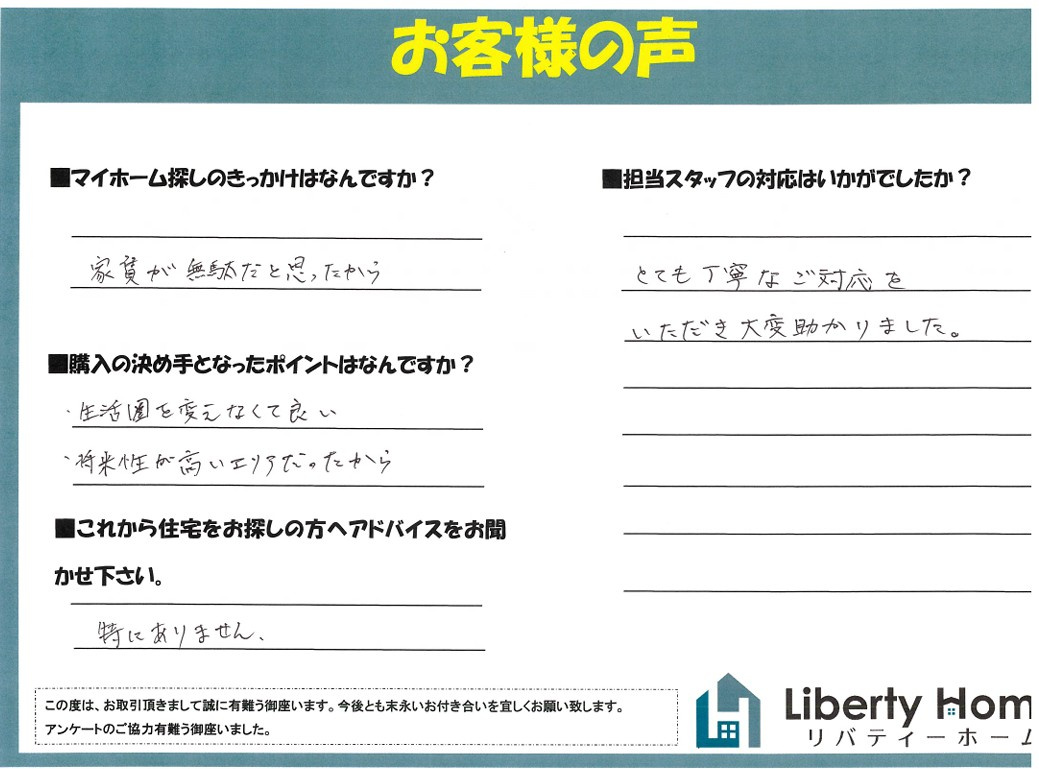 お客様の声
■マイホーム探しのきっかけはなんですか？
家賃が無駄だと思ったから
■購入の決め手となったポイントはなんですか？
・生活圏を変えなくて良い
・将来性が高いエリアだったから
■これから住宅をお探しの方へアドバイスをお聞
かせ下さい。
特にありません、
■担当スタッフの対応はいかがでしたか？
とても丁寧なご対応を
いただき大変助かりました。
この度は、お取引頂きまして誠に有難う御座います。今後とも末永いお付き合いを宜しくお願い致します。
アンケートのご協力有難う御座いました。
Liberty Hom
リバティーホーム